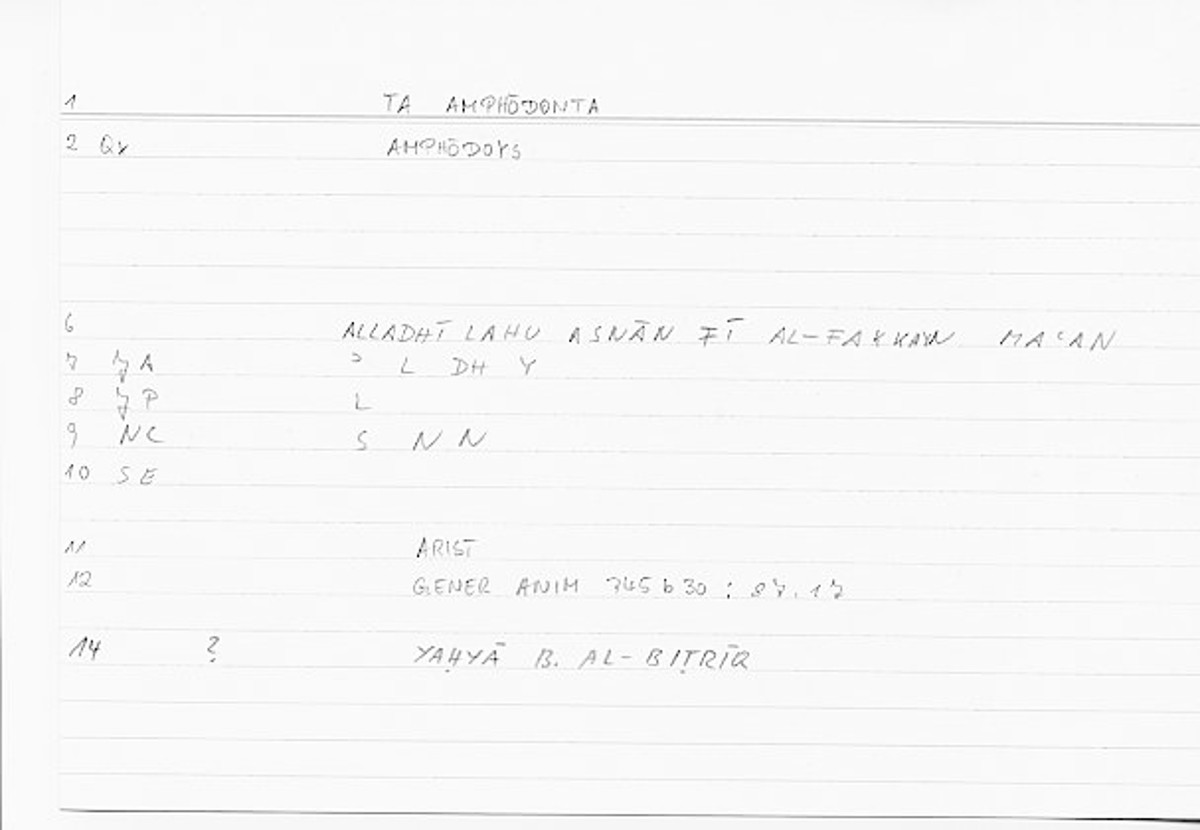 1 TA AMPHŌDONTA
2 Qv AMPHŌDOYS
6 ALLADHĪ LAHU ASNĀN FĪ AL-FAKKAYN MAʿAN
7 JA ʾ L DH Y
8 JP L
9 NC S N N
10 SE
11 ARIST
12 GENER ANIM 745 b 30 ; 87.17
14 ? YAḤYĀ B. AL-BIṬRĪQ